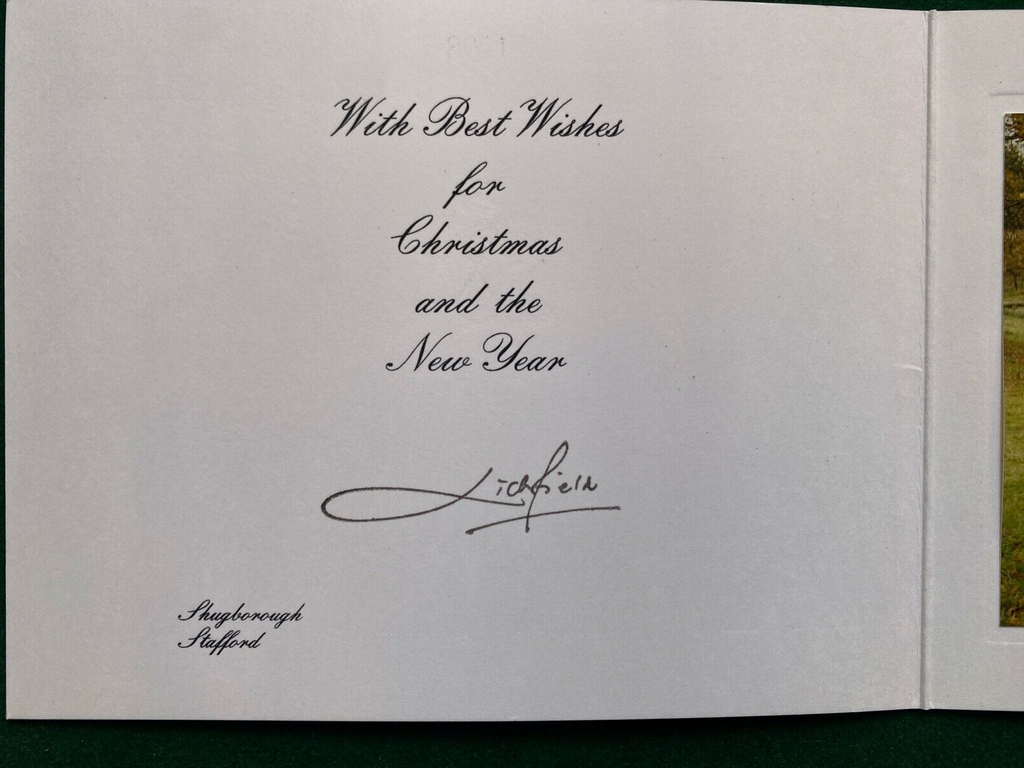 With Best Wishes
for
Christmas
and the
New Year
Lichfield
Shugborough
Stafford